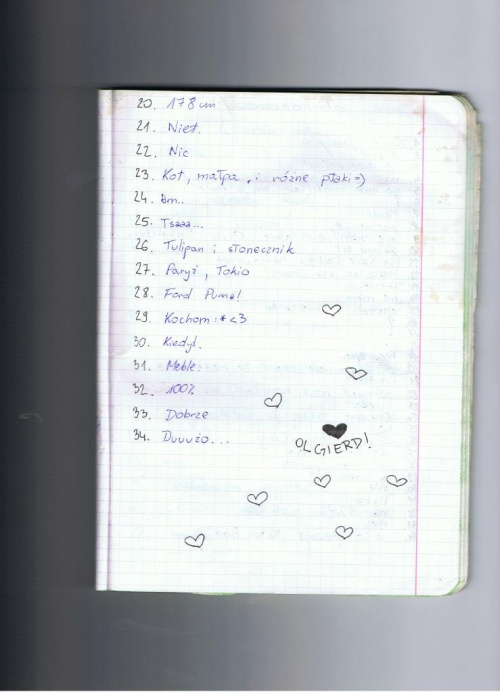 20. 178 cm
21. Nieł.
22. Nic
23. Kot, małpa, i różne ptaki =)
24. Hm..
25. Tsaaa...
26. Tulipan i słonecznik
27. Paryż, Tokio
28. Ford Puma!
29. Kochom :* <3
30. Kiedyś.
31. Meble.
32. 100%
33. Dobrze
34. Duuużo...
OLGIERD!